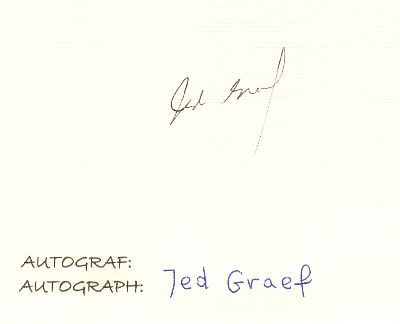 Jed Graef
AUTOGRAF:
AUTOGRAPH: Jed Graef